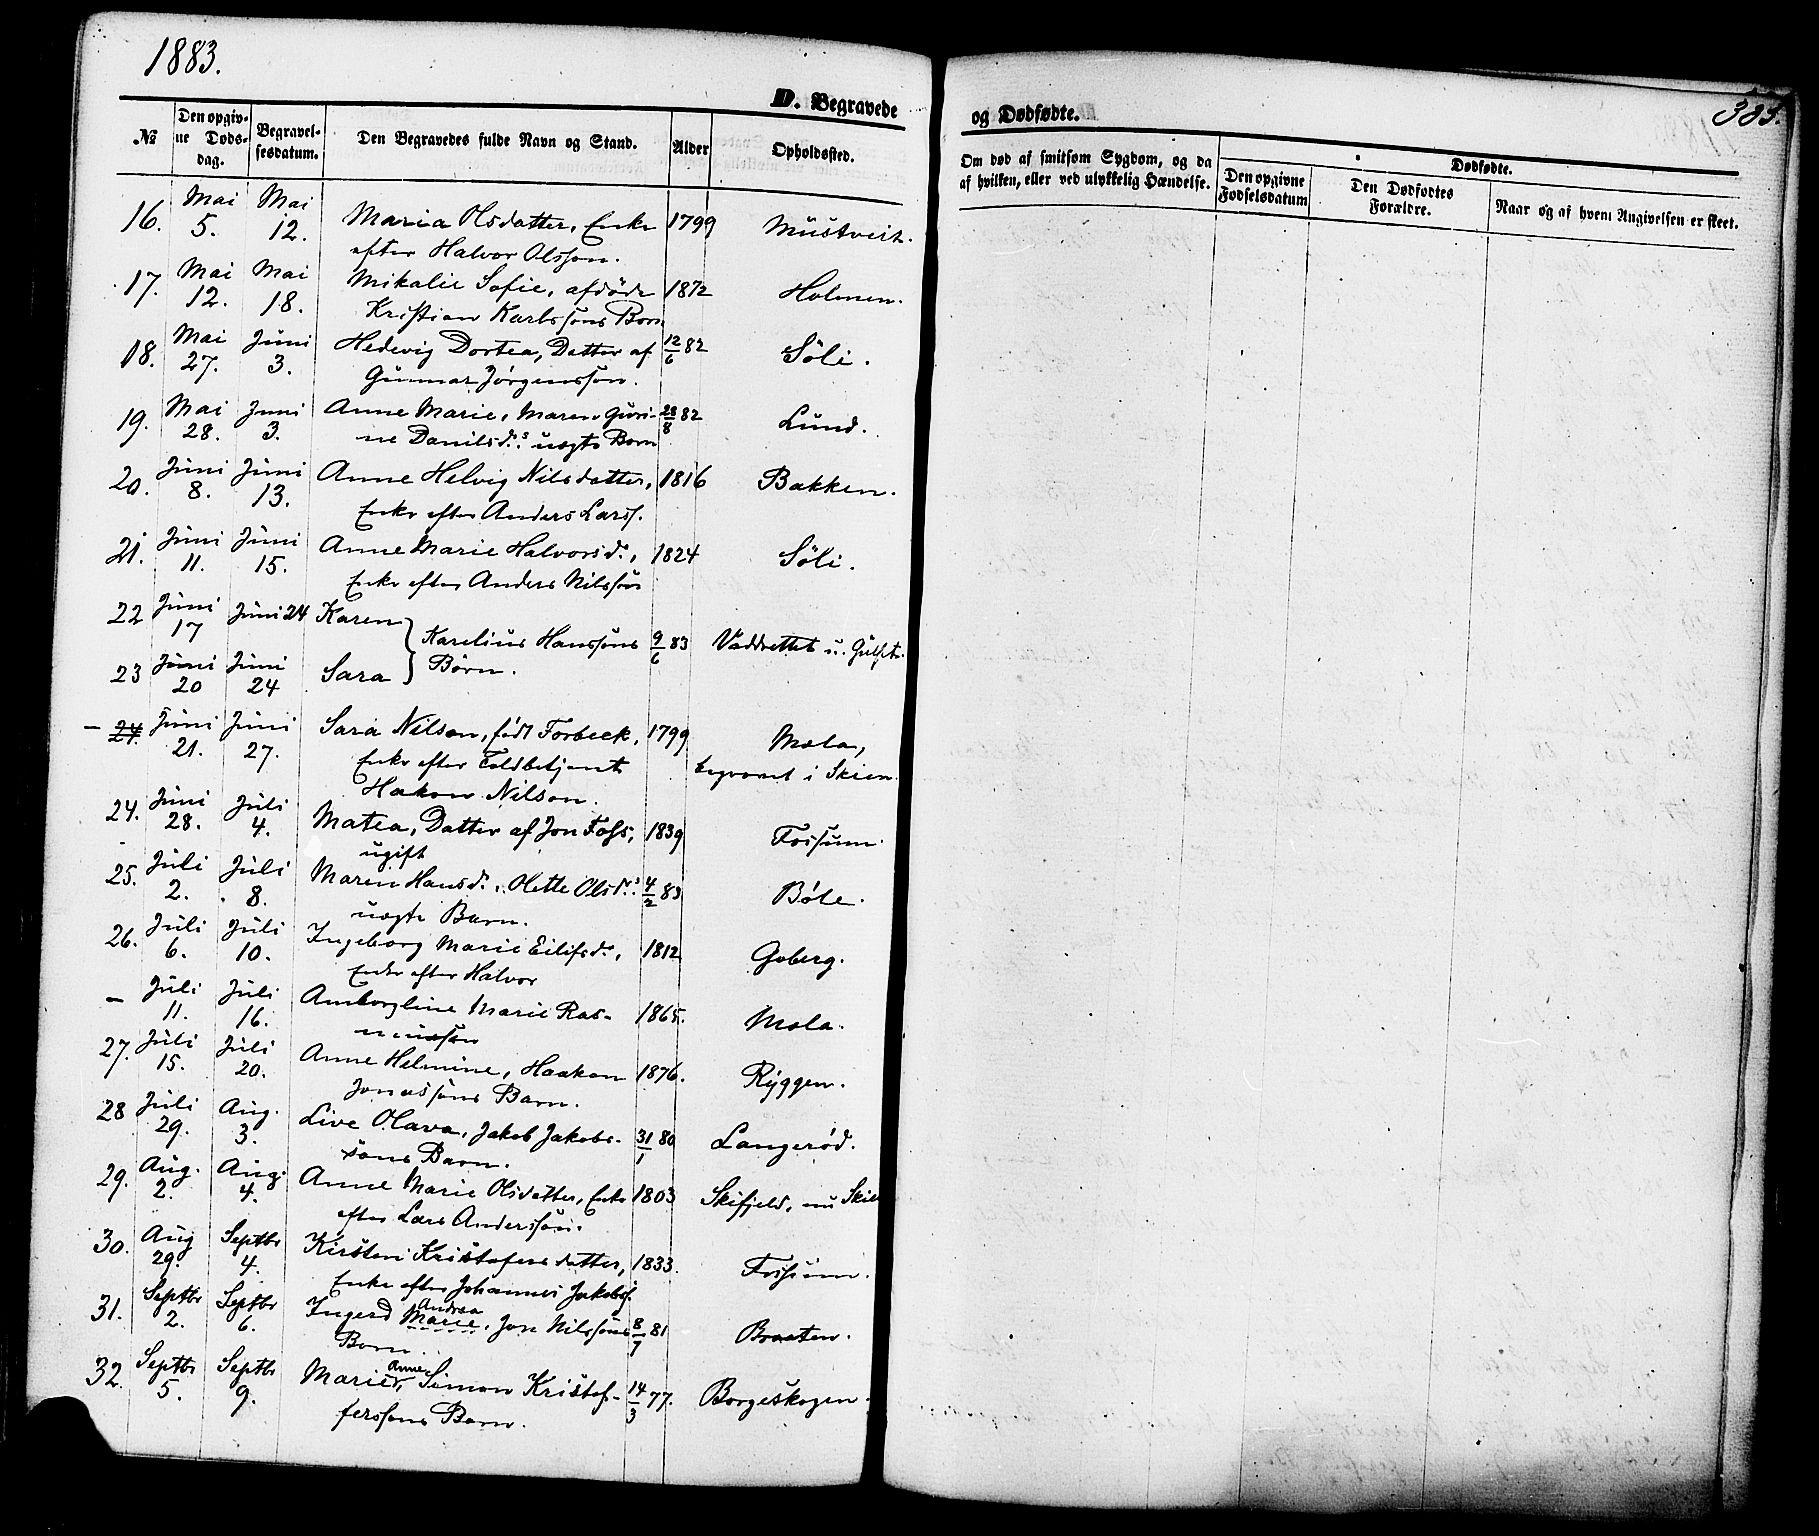 1883.
D. Begravede
og Dødfødte.
№ Den opgivne Dødsdag. Begravelsesdatum. Den Begravedes fulde Navn og Stand. Alder Opholdssted.
Om død af smitsom Sygdom, og da af hvilken, eller ved ulykkelig Hændelse. Dødfødte. Den opgivne Fødselsdatum Den Dødfødtes Forældre. Naar og af hvem Angivelsen er skeet.
16. Mai 5. Mai 12. Maria Olsdatter, Enke 1799 Mustveit.
efter Halvor Olsson.
17. Mai 12. Mai 18. Mikalie Sofie, afdøde 1872 Holmen.
Kristian Karlssøns Barn
18. Mai 27. Juni 3. Hedevig Dortea, Datter af 12/6 82 Söli.
Gunnar Jörgenssøn.
19. Mai 28. Juni 3. Anne Marie, Maren Guri- 28/8 82 Lund.
ne Danilsd.s uægte Barn
20. Juni 8. Juni 13. Anne Helvig Nilsdatter, 1816 Bakken.
Enke efter Anders Larss.
21. Juni 11. Juni 15. Anne Marie Halvorsd., 1824 Söli.
Enke efter Anders Nilssøn
22 Juni 17 Juni 24 Karen } Karelius Hanssøns 9/6 83
23 Juni 20 Juni 24 Sara } Børn.
– 24. Juni 21. Juni 27. Sara Nilson, født Forbeck, 1799 Mæla,
Enke efter Toldbetjent begravet i Skien.
Hakon Nilson.
24. Juni 28. Juli 4. Matea, Datter af Jon Foss, 1839 Fossum.
ugift
25. Juli 2. Juli 8. Maren Hansd., Olette Olsd.s 4/2 83 Böle.
uægte Barn.
26. Juli 6. Juli 10. Ingeborg Marie Eilifsd., 1812 Goberg.
Enke efter Halvor
– Juli 11. Juli 16. Amborgline Marie Ras- 1865. Mæla.
mussen
27. Juli 15. Juli 20. Anne Helmine, Haakon 1876. Ryggen.
Jonassøns Barn.
28 Juli 29. Aug. 3. Live Olava, Jakob Jakobs- 31/1 80 Langerød.
søns Barn.
29. Aug. 2. Aug. 4. Anne Marie Olsdatter, Enke 1803 Skifjeld, nu Skien
efter Lars Anderssøn.
30. Aug 29. Septbr 4. Kirsten Kristofersdatter, 1833. Fossum.
Enke efter Johannes Jakobss.
31. Septbr 2. Septbr 6. Ingerd Marie Andrea, Jon Nilssøns 8/7 81 Braaten.
Barn.
32. Septbr 5. Septbr 9. Marie Anne, Simon Kristof- 14/3 77. Borgeskogen.
ferssøns Barn.